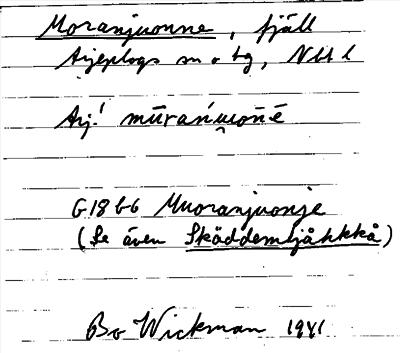 Moranjuonne, fjäll
Arjeplogs sn o tg, Nbt l
Arj.! mūrańi̯uo̅n̄ē
G18 b6 Muoranjuonje
(Se även Skåddemtjåhkkå)
Bo Wickman 1941